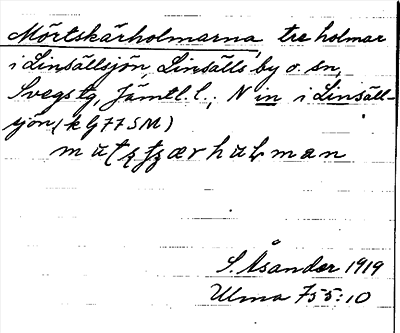 Mörtskärholmarna, tre holmar
i Linsällsjön, Linsälls by o. sn,
Svegs tg, Jämtl. l.; N in i Linsäll-
sjön (k G77SM)
S. Åsander 1919
Ulma 755:10